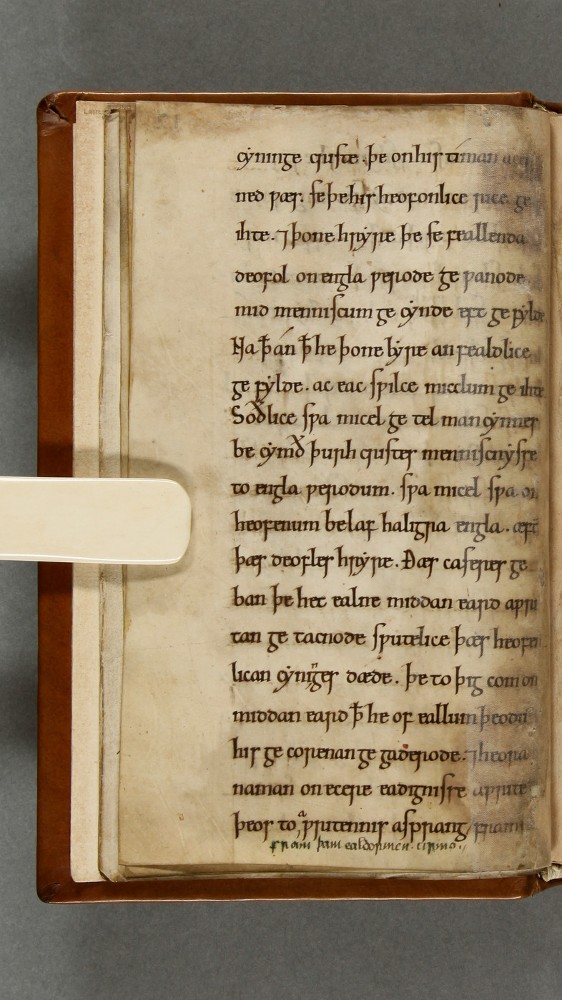 cyninge criste. þe on his timan
ned wæs. se þe his heofonlice rice ge
ihte. ⁊ þone hryre þe se feallenda
deofol on engla werode ge wanode
mid menniscum ge cynde eft ge fylde
Na þ an ꝥ he þone lyre anfealdlice
ge fylde. ac eac swilce micclum ge ihte
Soðlice swa micel ge tel mancynnes
be cymð þurh cristes menniscnysse
to engla werodum. swa micel swa on
heofenum belaf haligra engla. æft̄
þæs deofles hryre. Ðæs caseres ge
ban þe het ealne middan eard awri
tan ge tacnode swutelice þæs heofen
lican cyninges dæde. þe to þig com on
middan eard ꝥ he of eallum þeodum
his ge corenan ge gaderode. ⁊ heora
naman on ecere eadignisse awrite
þeos to writennis asprang fram
fram þam ealdormen. cirino.